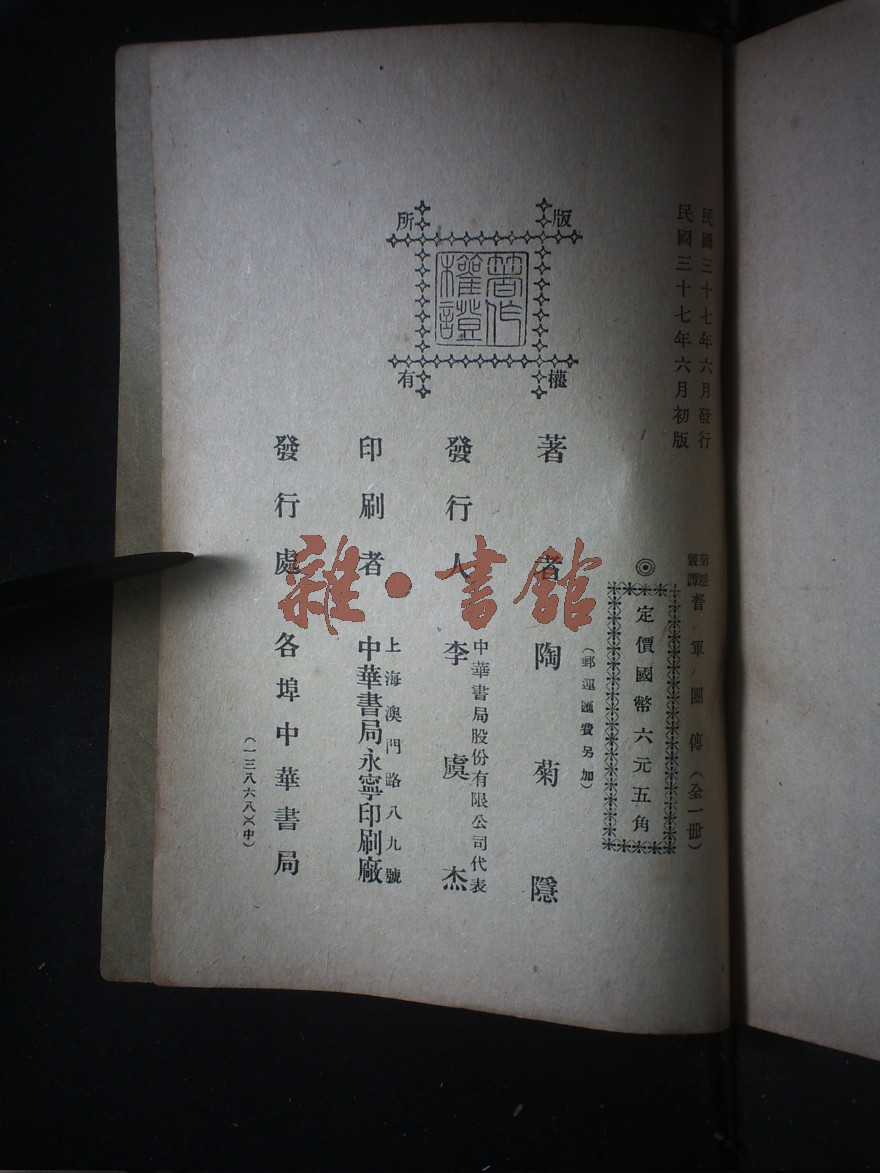 民國三十七年六月發行
民國三十七年六月初版
菊隱叢譚 督軍團傳（全一冊）
◎定價國幣六元五角
（郵運匯費另加）
版權所有
著作權證
著者 陶菊隱
發行人 李虞杰
中華書局股份有限公司代表
印刷者 中華書局永寧印刷廠
上海澳門路八九號
發行處 各埠中華書局
（一三八六八）（中）
雜·書館